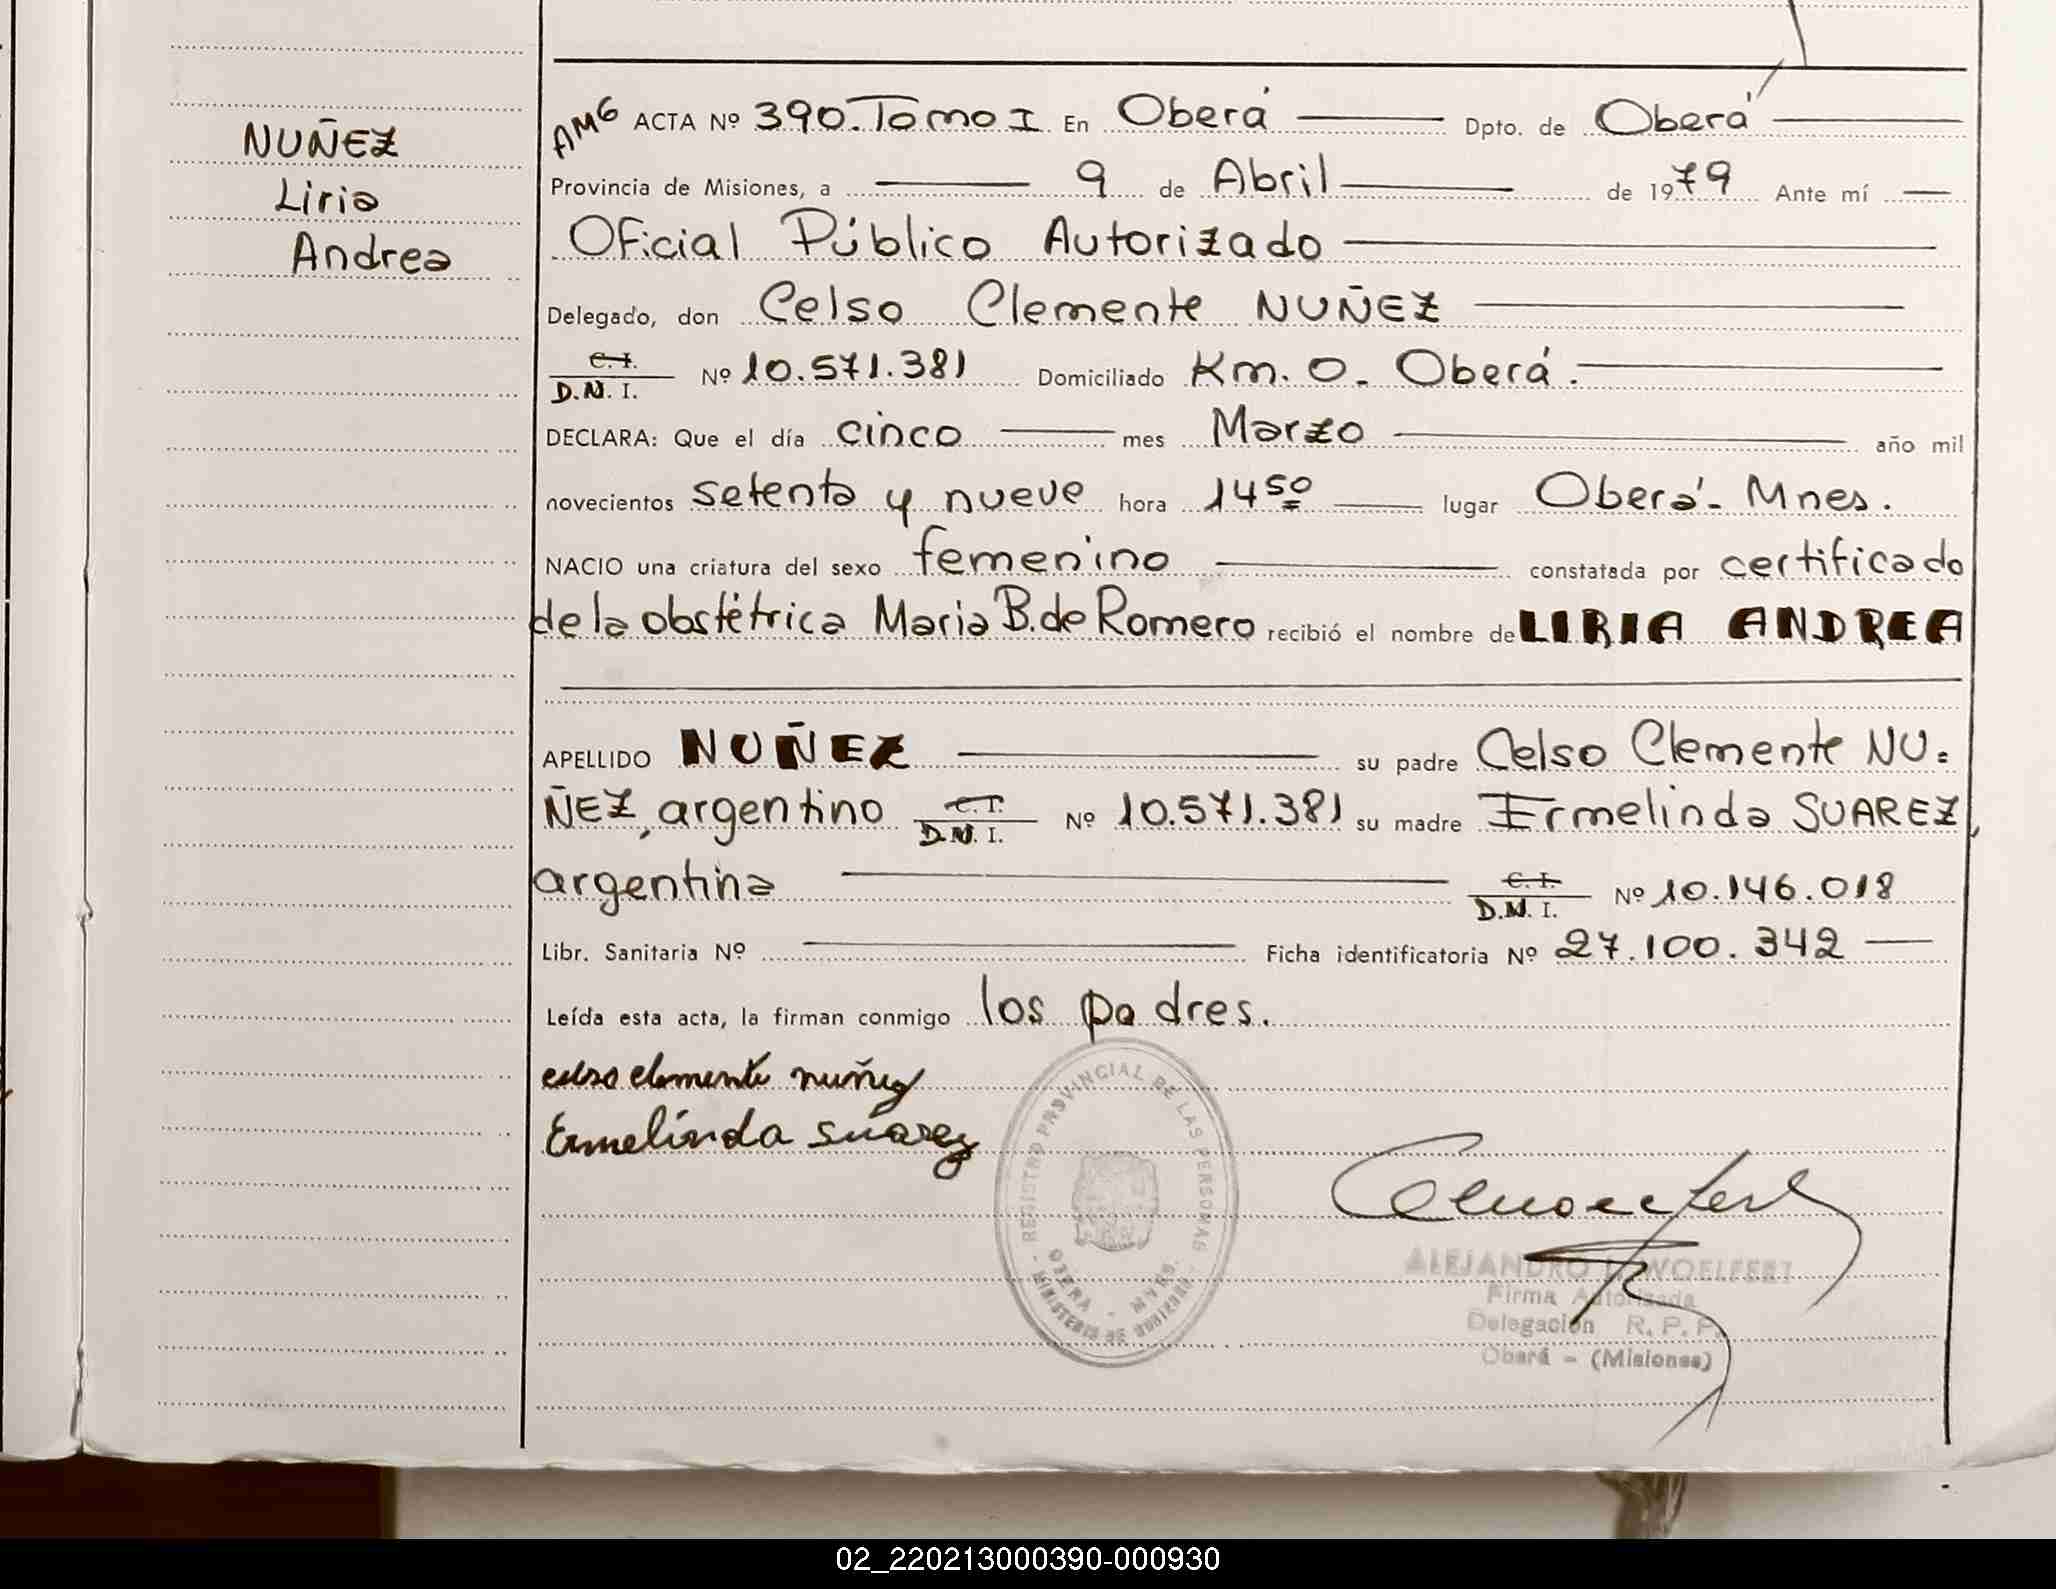 NUÑEZ
Liria
Andrea
AMG ACTA Nº 390. Tomo I En Oberá Dpto. de Oberá
Provincia de Misiones, a 9 de Abril de 1979 Ante mí
Oficial Público Autorizado
Delegado, don Celso Clemente NUÑEZ
C.I.
D.N.I. Nº 10.571.381 Domiciliado Km. 0. Oberá.
DECLARA: Que el día cinco mes Marzo año mil
novecientos setenta y nueve hora 14 50 lugar Oberá- Mnes.
NACIO una criatura del sexo femenino constatada por certificado
de la obstétrica Maria B. de Romero recibió el nombre de LIRIA ANDREA
APELLIDO NUÑEZ su padre Celso Clemente NU=
ÑEZ, argentino C.I. D.N.I. Nº 10.571.381 su madre Ermelinda SUAREZ,
argentina C.I. D.N.I. Nº 10.146.018
Libr. Sanitaria Nº Ficha identificatoria Nº 27.100.342
Leída esta acta, la firman conmigo los padres.
celso clemente nuñez
Ermelinda suarez
REGISTRO PROVINCIAL DE LAS PERSONAS
OBERA - MNES.
MINISTERIO DE GOBIERNO
ALEJANDRO WOELFERT
Firma Autorizada
Delegación R.P.P.
Oberá - (Misiones)
02_220213000390-000930